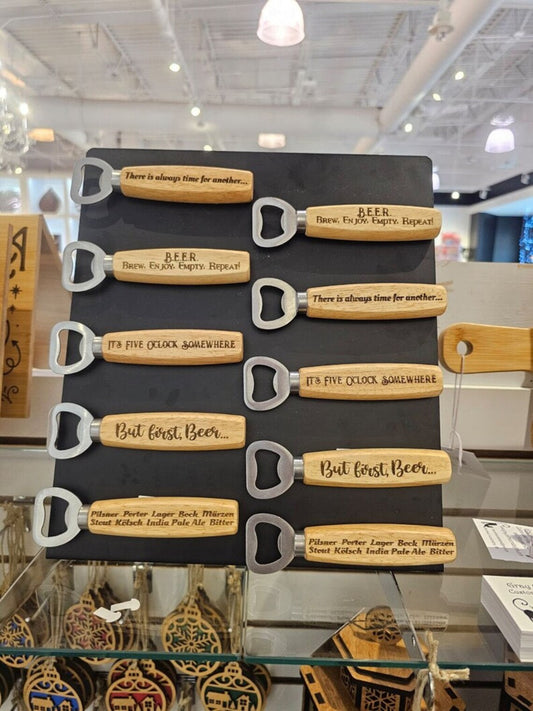 There is always time for another...
B.E.E.R.
Brew. Enjoy. Empty. Repeat!
IT'S FIVE OCLOCK SOMEWHERE
But first, Beer...
Pilsner Porter Lager Bock Märzen
Stout Kölsch India Pale Ale Bitter
B.E.E.R.
Brew. Enjoy. Empty. Repeat!
There is always time for another...
IT'S FIVE OCLOCK SOMEWHERE
But first, Beer...
Pilsner Porter Lager Bock Märzen
Stout Kölsch India Pale Ale Bitter
Custom